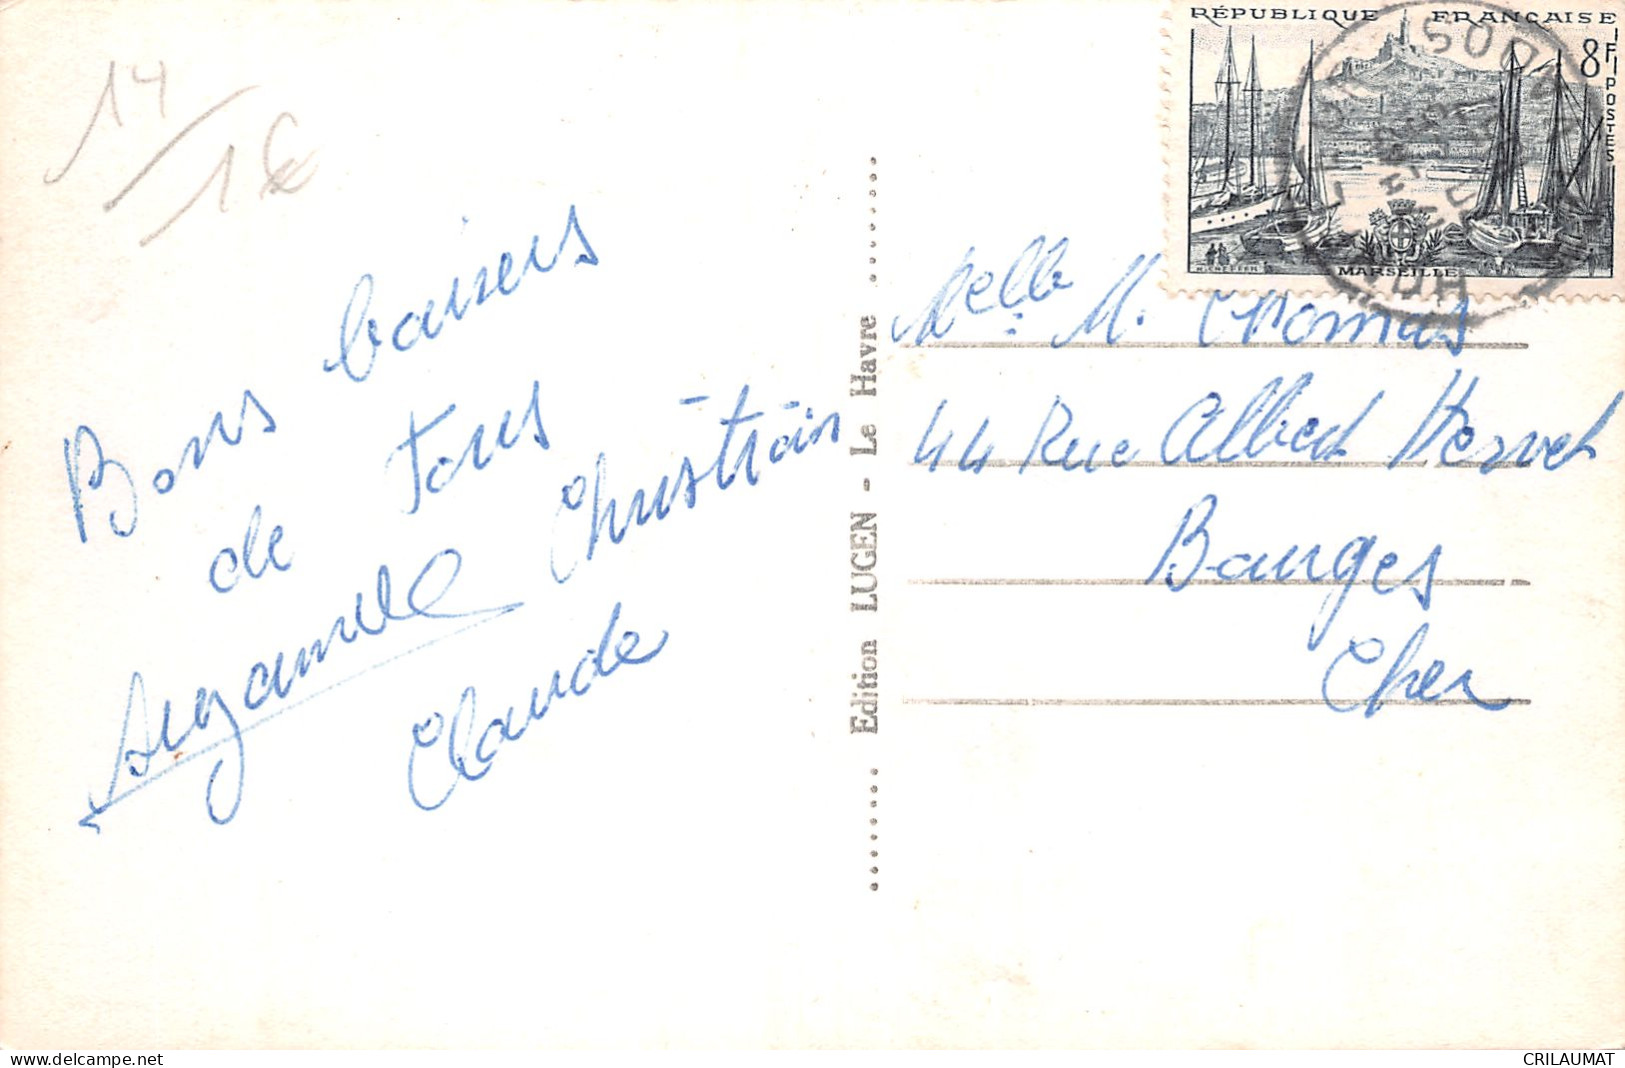 14
1€
Bons baisers
de tous
Suzanne Christian
Claude
Edition LUGEN - Le Havre
RÉPUBLIQUE FRANÇAISE
8F
POSTES
MARSEILLE
Melle M. Thomas
44 Rue Albert Hervet
Bourges
Cher
www.delcampe.net
CRILAUMAT